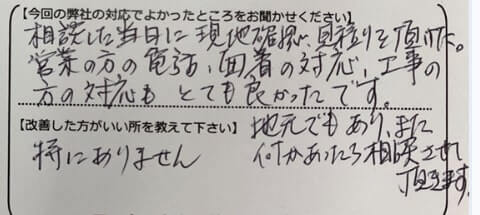 【今回の弊社の対応でよかったところをお聞かせください】
相談した当日に現地確認、見積りを頂けた。
営業の方の電話、面着の対応、工事の
方の対応も とても良かったです。
【改善した方がいい所を教えて下さい】
特にありません
地元でもあり、また
何かあったら相談させて
頂きます。